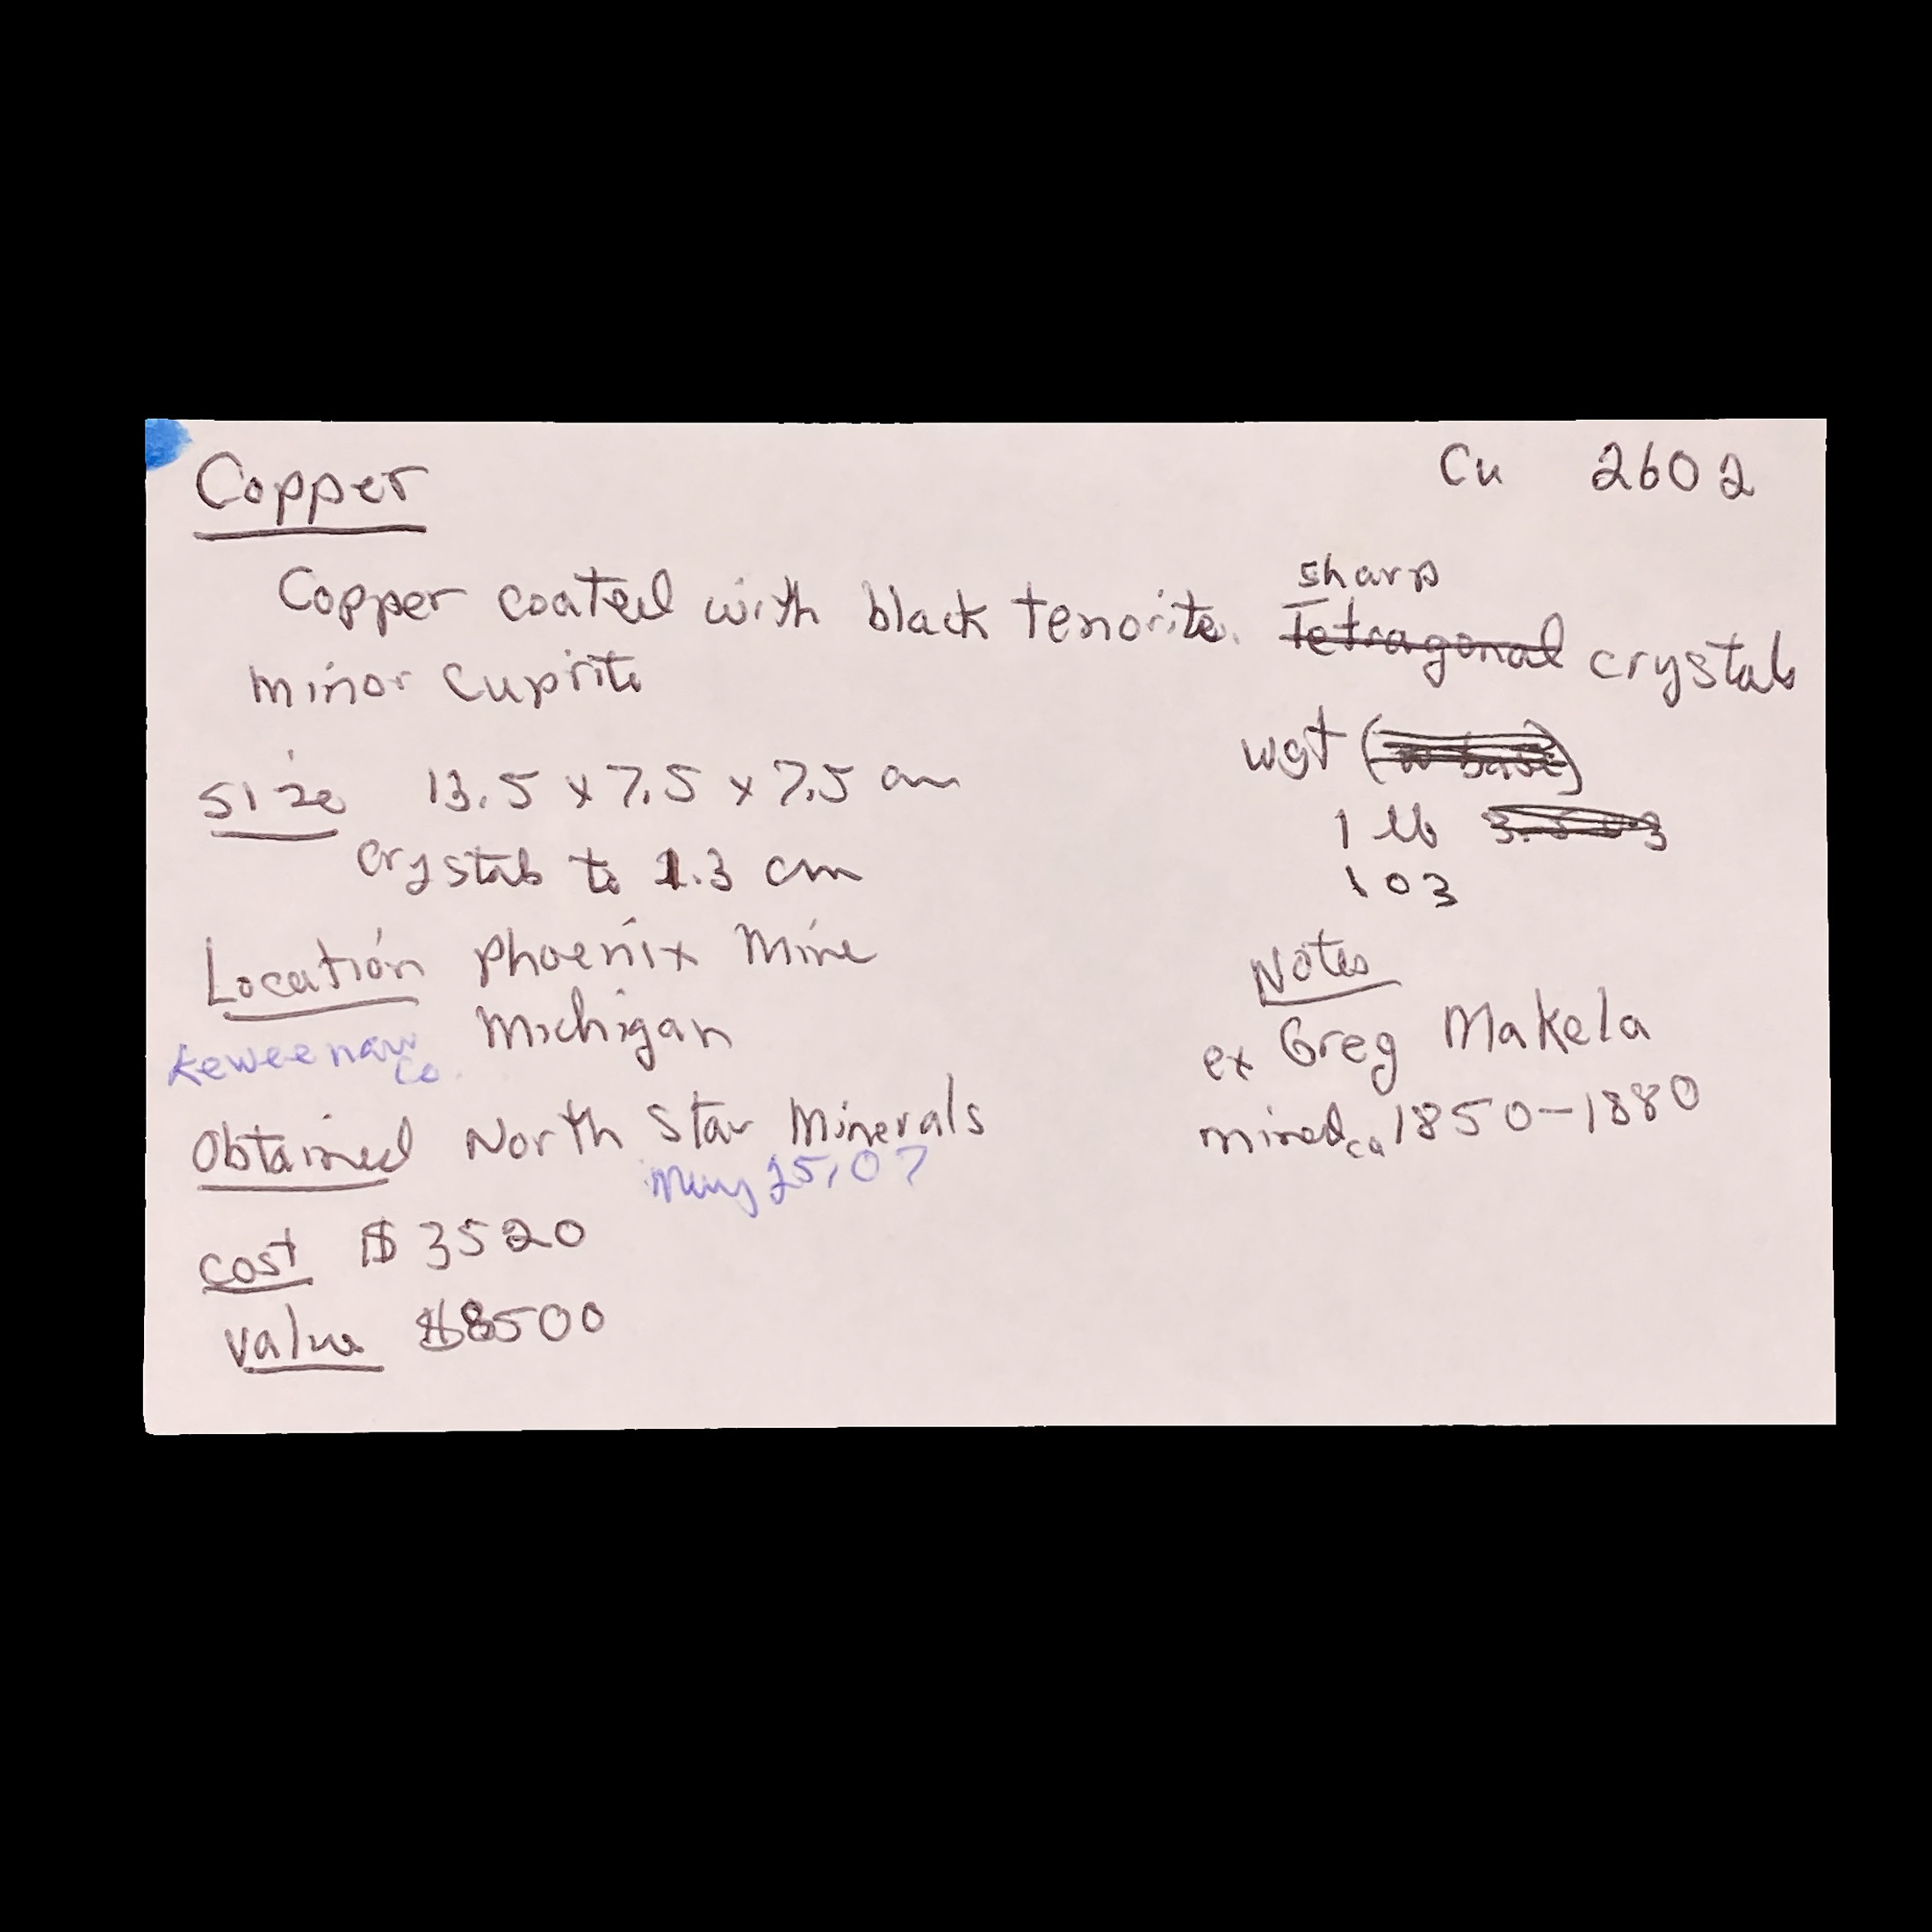 Copper
Cu 2602
Copper coated with black tenorite. sharp
Tetragonal crystals
minor cuprite
size 13.5 x 7.5 x 7.5 cm
crystals to 1.3 cm
wgt
1 lb
1 oz
Location Phoenix Mine
Michigan
Keweenaw
Co.
Obtained North Star Minerals
May 25, 07
cost $ 3520
value $8500
Notes
ex Greg Makela
mined ca 1850-1880